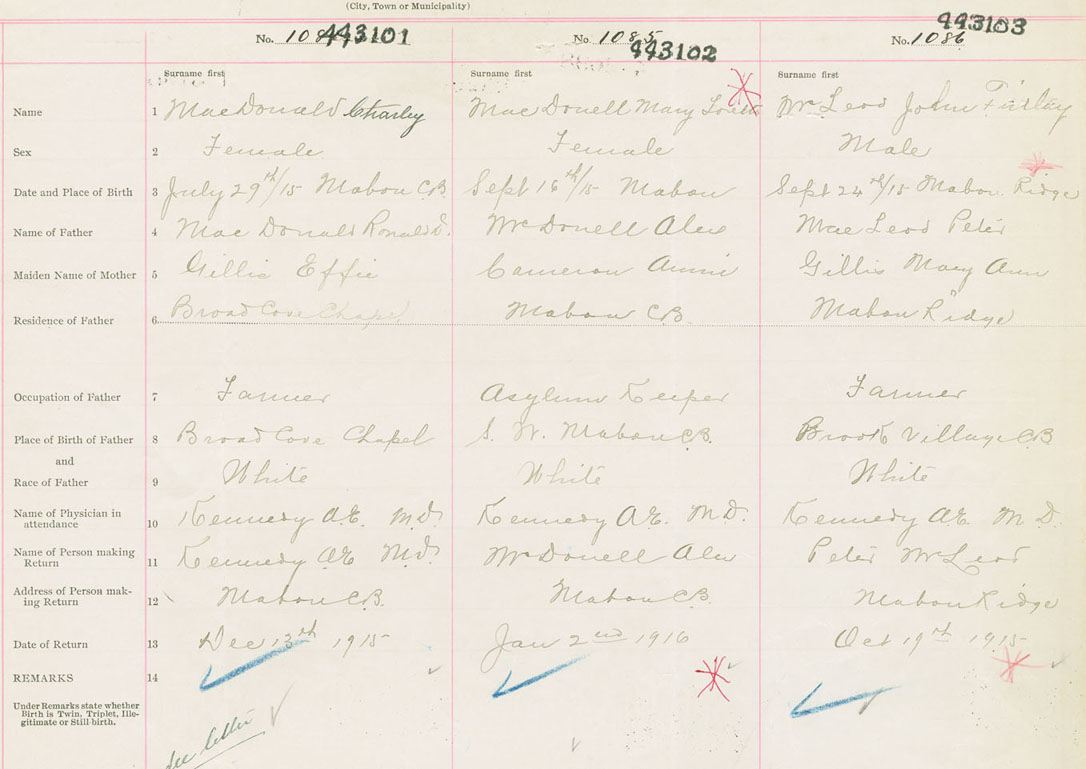 (City, Town or Municipality)
No. 443101 No. 1085 443102 No. 1086 443103
Surname first Surname first Surname first
Name 1 MacDonald Charley MacDonell Mary McLeod John Finlay
Sex 2 Female Female Male
Date and Place of Birth 3 July 29th/15 Mabou C.B. Sept 16th/15 Mabou Sept 24th/15 Mabou Ridge
Name of Father 4 MacDonald Ronald D. McDonell Alex MacLeod Peter
Maiden Name of Mother 5 Gillis Effie Cameron Annie Gillis Mary Ann
Residence of Father 6 Broad Cove Chapel Mabou C.B. Mabou Ridge
Occupation of Father 7 Farmer Asylum Keeper Farmer
Place of Birth of Father 8 Broad Cove Chapel S. W. Mabou C.B. Brook Village C.B
and
Race of Father 9 White White White
Name of Physician in
attendance 10 Kennedy A.E. M.D. Kennedy A.E. M.D. Kennedy A.E. M.D.
Name of Person making
Return 11 Kennedy A.E. M.D. McDonell Alex Peter McLeod
Address of Person mak-
ing Return 12 Mabou C.B. Mabou C.B. Mabou Ridge
Date of Return 13 Dec 13th 1915 Jan 2nd 1916 Oct 19th 1915
REMARKS 14
Under Remarks state whether
Birth is Twin, Triplet, Ille-
gitimate or Still-birth.
See letter